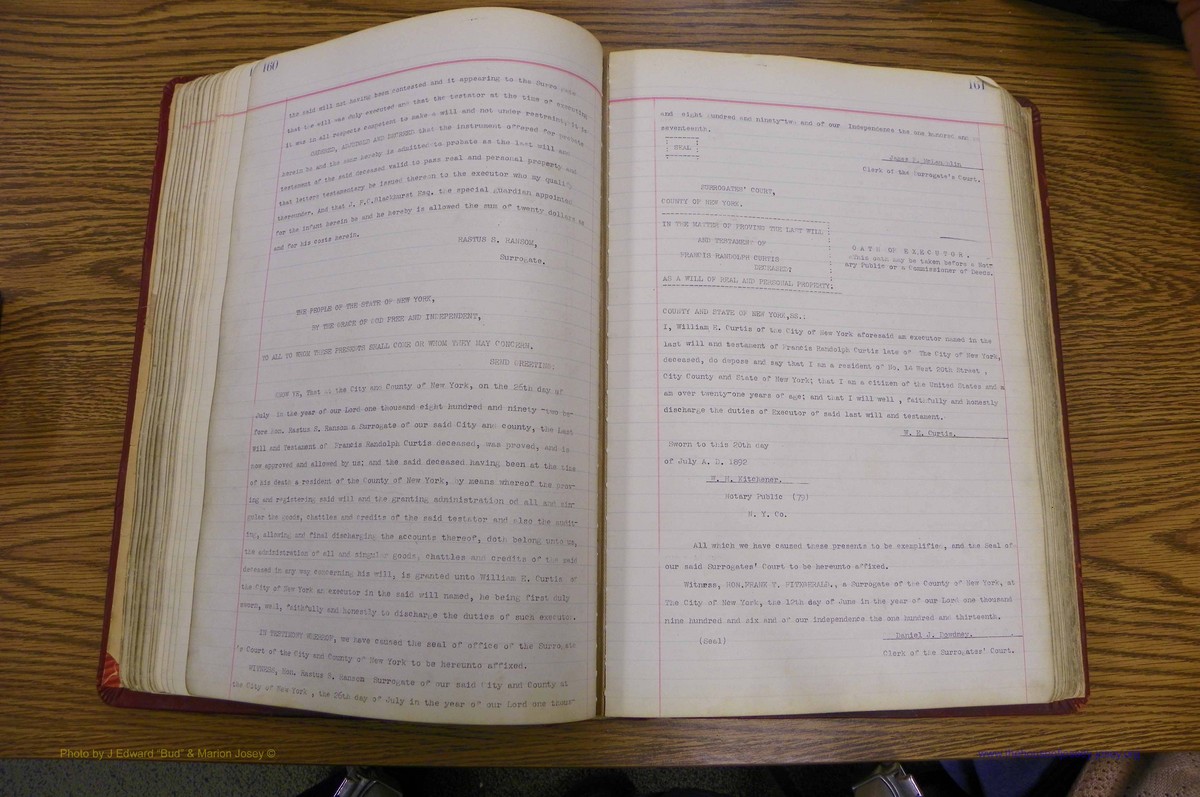 160
the said will not having been contested and it appearing to the Surro gate
that the will was duly executed and that the testator at the time of executing
it was in all respects competent to make a will and not under restraint, it is
ORDERED, ADJUDGED AND DECREED that the instrument offered for probate
herein be and the same hereby is admitted to probate as the last will and
testament of the said deceased valid to pass real and personal property and
that letters testamentary be issued thereon to the executor who my qualify
thereunder. And that J. F.C.Blackhurst Esq. the special guardian appointed
for the infant herein be and he hereby is allowed the sum of twenty dollars as
and for his costs herein.
RASTUS S. RANSOM,
Surrogate.
THE PEOPLE OF THE STATE OF NEW YORK,
BY THE GRACE OF GOD FREE AND INDEPENDENT,
TO ALL TO WHOM THESE PRESENTS SHALL COME OR WHOM THEY MAY CONCERN.
SEND GREETING:
KNOW YE, That at the City and County of New York, on the 26th day of
July in the year of our Lord one thousand eight hundred and ninety -two be-
fore Hon. Rastus S. Ransom a Surrogate of our said City and county, the last
Will and Testament of Francis Randolph Curtis deceased, was proved, and is
now approved and allowed by us; and the said deceased having been at the time
of his death a resident of the County of New York, by means whereof the prov-
ing and registering said will and the granting administration od all and sin-
gular the goods, chattles and credits of the said testator and also the audit-
ing, allowing and final discharging the accounts thereof, doth belong unto us,
the administration of all and singular goods, chattles and credits of the said
deceased in any way concerning his will, is granted unto William E. Curtis of
the City of New York an executor in the said will named, he being first duly
sworn, well, faithfully and honestly to discharge the duties of such executor.
IN TESTIMONY WHEREOF, we have caused the seal of office of the Surrogate
's Court of the City and County of New York to be hereunto affixed.
WITNESS, Hon. Rastus S. Ransom Surrogate of our said City and County at
the City of New York , the 26th day of July in the year of our Lord one thous-
161
and eight hundred and ninety-two and of our Independence the one hundred and
seventeenth.
SEAL
Clerk of the Surrogate's Court.
SURROGATES' COURT,
COUNTY OF NEW YORK.
IN THE MATTER OF PROVING THE LAST WILL
AND TESTAMENT OF
FRANCIS RANDOLPH CURTIS
DECEASED;
AS A WILL OF REAL AND PERSONAL PROPERTY;
OATH OF EXECUTOR.
This oath may be taken before a Not-
ary Public or a Commissioner of Deeds.
COUNTY AND STATE OF NEW YORK,SS.:
I, William E. Curtis of the City of New York aforesaid an executor named in the
last will and testament of Francis Randolph Curtis late of The City of New York,
deceased, do depose and say that I am a resident of No. 14 West 99th Street ,
City County and State of New York; that I am a citizen of the United States and a
am over twenty-one years of age; and that I will well , faithfully and honestly
discharge the duties of Executor of said last will and testament.
W. E. Curtis.
Sworn to this 20th day
of July A. D. 1892
Kitchener.
Notary Public (79)
N. Y. Co.
All which we have caused these presents to be exemplified, and the Seal of
our said Surrogates' Court to be hereunto affixed.
Witness, HON.FRANK T. FITZGERALD., a Surrogate of the County of New York, at
The City of New York, the 12th day of June in the year of our Lord one thousand
nine hundred and six and of our independence the one hundred and thirteenth.
(Seal)
Daniel J. Downey.
Clerk of the Surrogates' Court.
Photo by J Edward "Bud" & Marion Josey ©